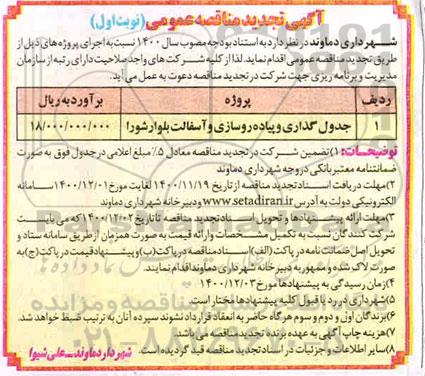 آگهی تجدید مناقصه عمومی (نوبت اول)
شهرداری دماوند در نظر دارد به استناد بودجه مصوب سال ۱۴۰۰ نسبت به اجرای پروژه های ذیل از
طریق تجدید مناقصه عمومی اقدام نماید. لذا از کلیه شرکت های واجد صلاحیت دارای رتبه از سازمان
مدیریت و برنامه ریزی جهت شرکت در تجدید مناقصه دعوت به عمل می آید.
ردیف پروژه برآورد به ریال
۱ جدول گذاری و پیاده روسازی و آسفالت بلوار شورا ۱۸/۰۰۰/۰۰۰/۰۰۰
توضیحات: ۱) تضمین شرکت در تجدید مناقصه معادل ۵٪ مبلغ اعلامی در جدول فوق به صورت
ضمانتنامه معتبر بانکی در وجه شهرداری دماوند
۲) مهلت دریافت اسناد تجدید مناقصه از تاریخ ۱۴۰۰/۱۱/۱۹ لغایت مورخ ۱۴۰۰/۱۲/۰۱ سامانه
الکترونیکی دولت به آدرس www.setadiran.ir و دبیرخانه شهرداری دماوند
۳) مهلت ارائه پیشنهادها و تحویل اسناد تجدید مناقصه تا تاریخ ۱۴۰۰/۱۲/۰۲ که می بایست
شرکت کنندگان نسبت به تکمیل مشخصات و ارائه قیمت به صورت همزمان از طریق سامانه ستاد و
تحویل اصل ضمانت نامه در پاکت (الف) اسناد مناقصه در پاکت (ب) و پیشنهاد قیمت در پاکت (ج) به
صورت لاک شده و ممهور به دبیرخانه شهرداری دماوند اقدام نمایند.
۴) زمان رسیدگی به پیشنهادها مورخ ۱۴۰۰/۱۲/۰۳
۵) شهرداری در رد یا قبول کلیه پیشنهادها مختار است.
۶) برندگان اول و دوم و سوم هرگاه حاضر به انعقاد قرارداد نشوند سپرده آنان به ترتیب ضبط خواهد شد.
۷) هزینه چاپ آگهی به عهده برنده تجدید مناقصه می باشد
۸) سایر اطلاعات و جزئیات در اسناد تجدید مناقصه قید گردیده است.
شهردار دماوند_علی شیوا